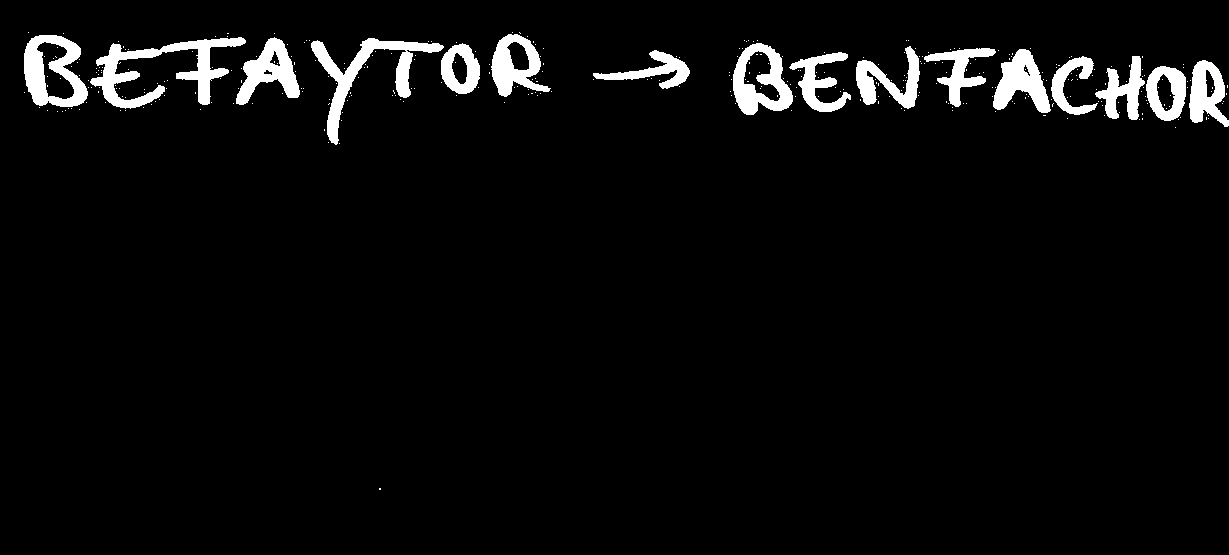 BEFAYTOR → BENFACHOR